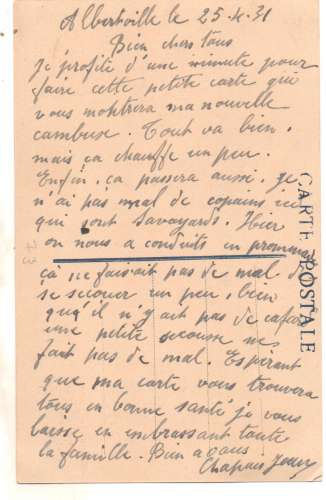 Albertville le 25-4-31
Bien chers tous
je profite d'une minute pour
faire cette petite carte qui
vous montrera ma nouvelle
cambuse. Tout va bien.
mais ça chauffe un peu.
Enfin, ça passera aussi. je
n'ai pas mal de copains ici
qui sont Savoyards. Hier
on nous a conduits en promenade
çà ne faisait pas de mal de
se secouer un peu, bien
qu'il n'y ait pas de cafard
une petite secousse ne
fait pas de mal. Espérant
que ma carte vous trouvera
tous en bonne santé je vous
laisse en embrassant toute
la famille. Bien a vous
Chapuis
CARTE POSTALE